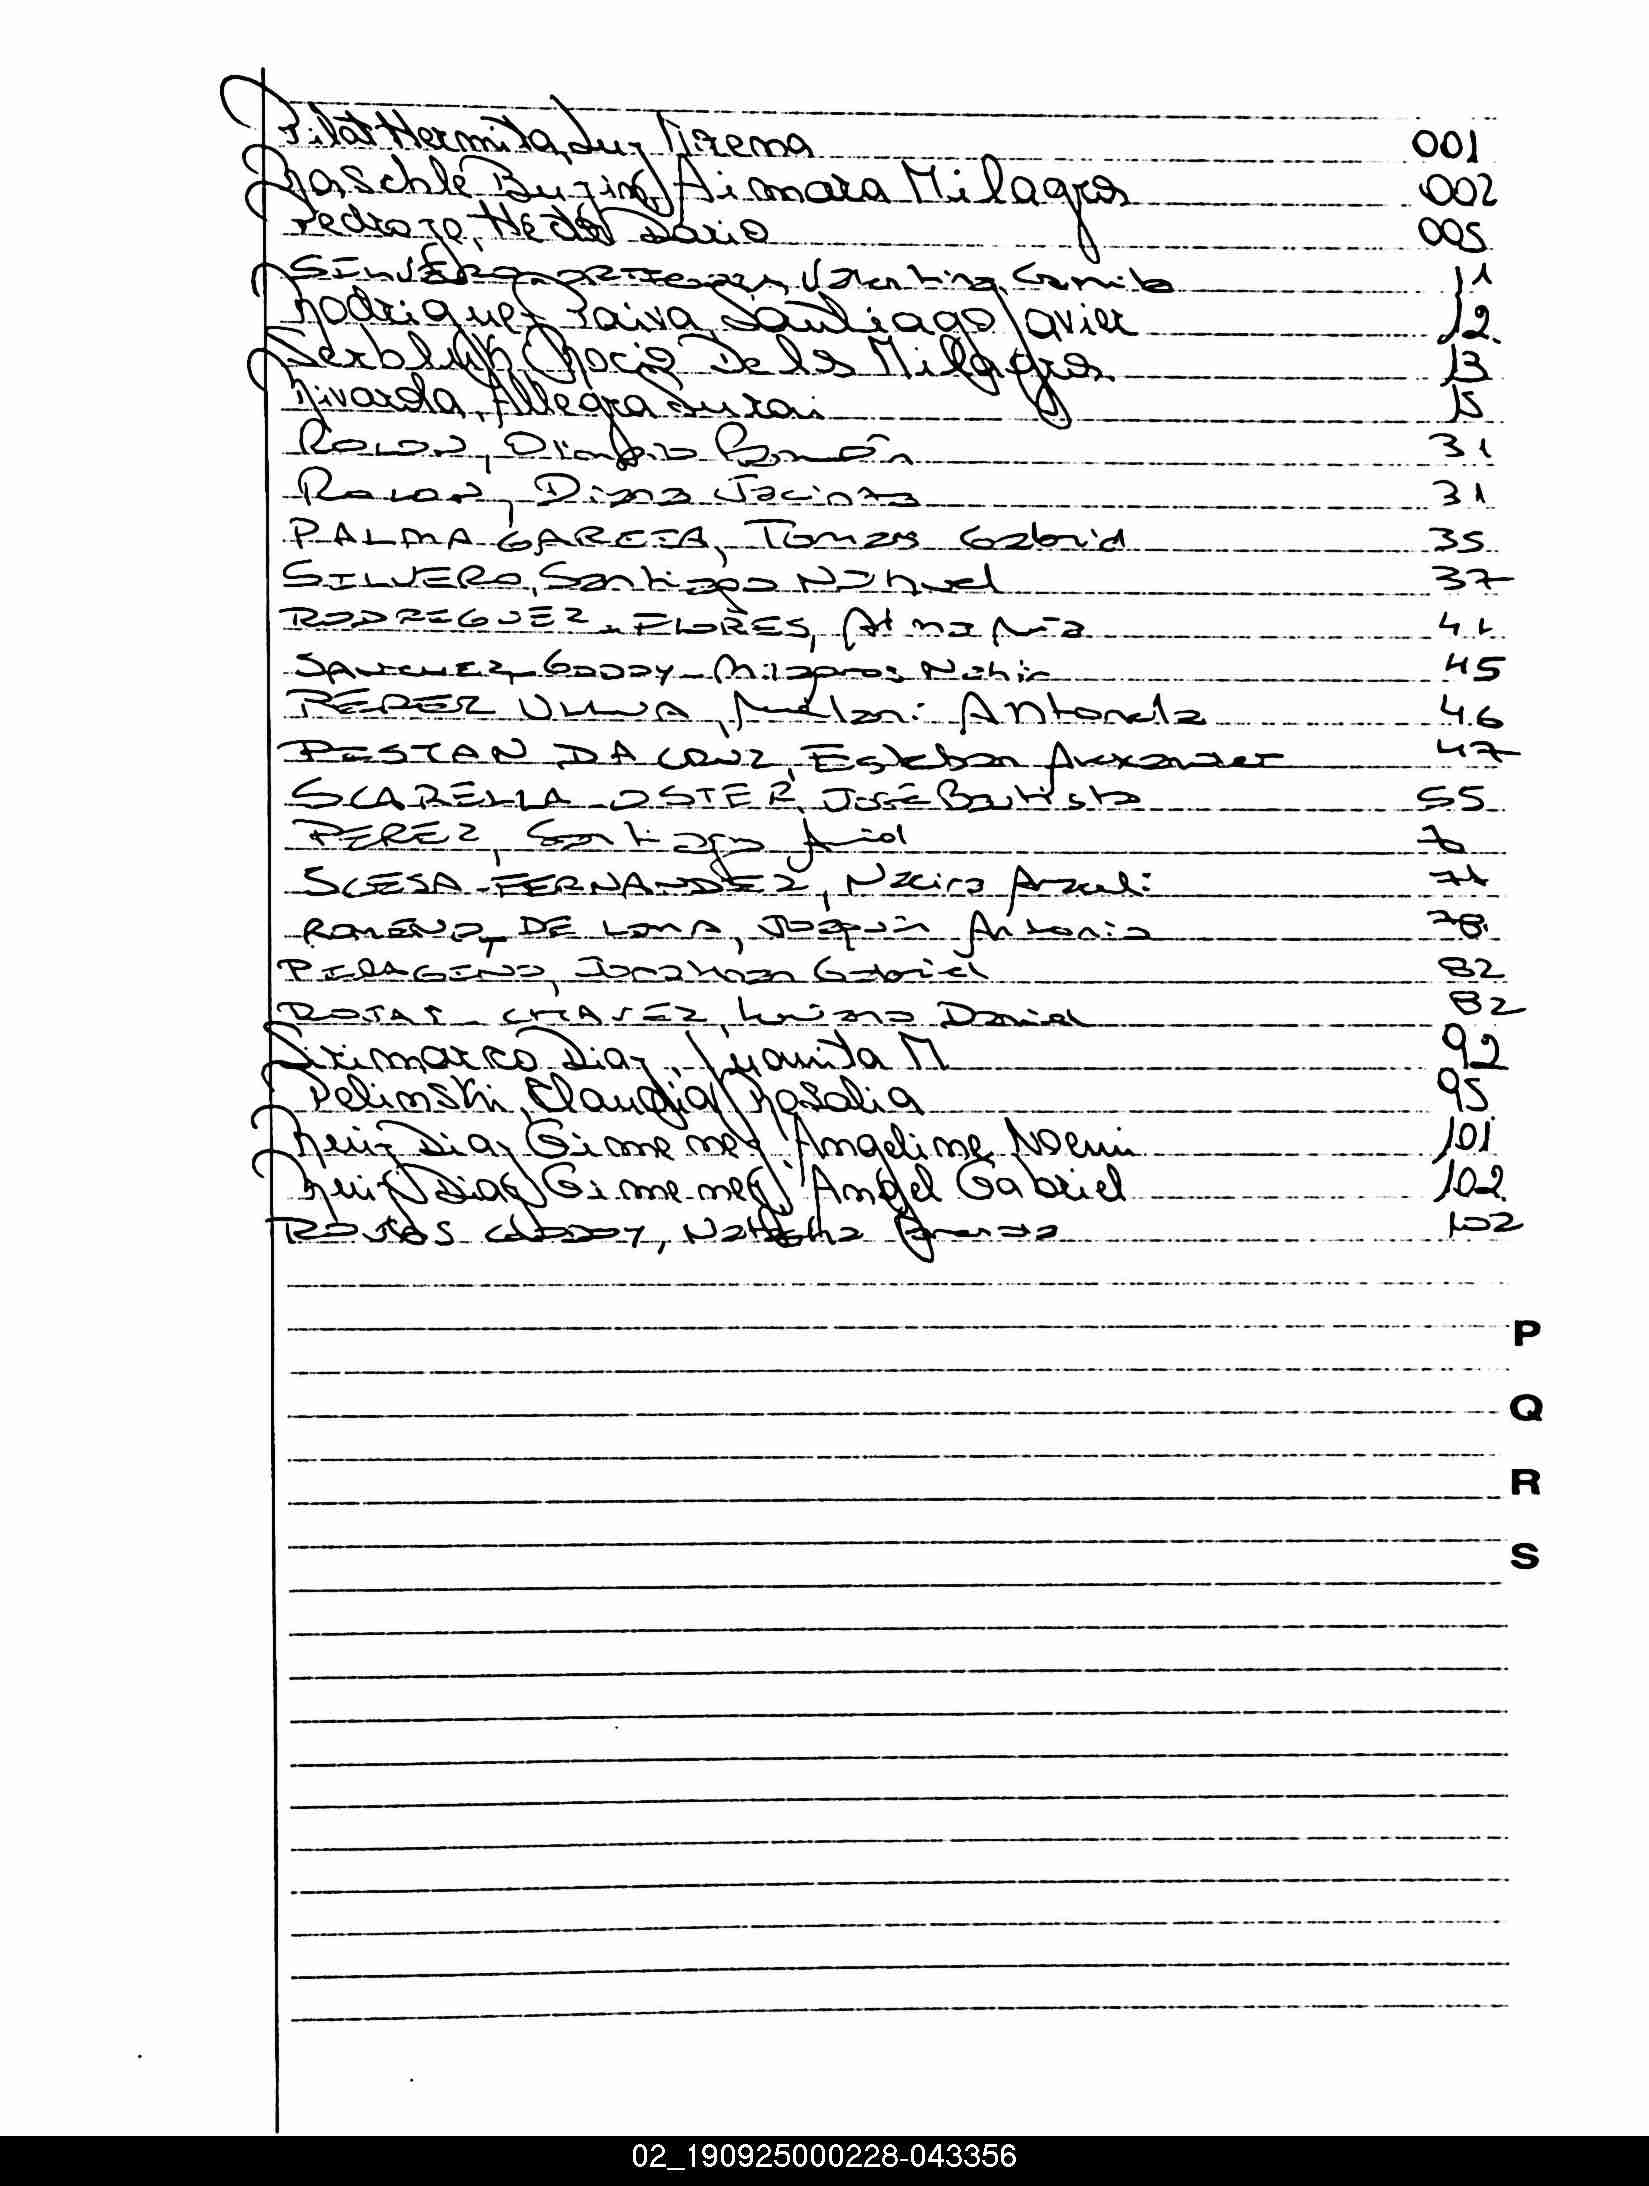 Pilat Hermita, Luz Mirena 001
Raschle Buzina, Aimara Milagros 002
Pedrozo, Héctor Dario 005
SILVERO Valentina Camila 11
Rodriguez Paiva, Santiago Javier 12
Rocio De los Milagros 13
Rivarola, Allegra Surai 15
ROLON, Ramón 31
ROLON, Diana Jacinta 31
PALMA GARCIA, Tomas Gabriel 35
SILVERO, Santiago Nahuel 37
RODRIGUEZ FLORES, Alma Mia 41
SANCHEZ GODOY Milagros 45
PEREZ ULLUA, Melani Antonela 46
PESTAN DA CRUZ, Esteban Alexander 47
SCARELLA OSTER, José Bautista 55
PEREZ, Santiago Ariel 70
SCIESA FERNANDEZ, Naira Araceli 71
ROMERO DE LIMA, Joaquin Antonio 78
PELAGINO, Jonathan Gabriel 82
ROJAS CHAVEZ, Luciano Daniel 82
Sirimarco Diaz, Juanita M 92
Pelinski, Claudia Rosalia 95
Ruiz Diaz Gimenez, Angeline Noemi 101
Ruiz Diaz Gimenez, Angel Gabriel 102
ROJAS GODOY, Natasha 102
P
Q
R
S
02_190925000228-043356